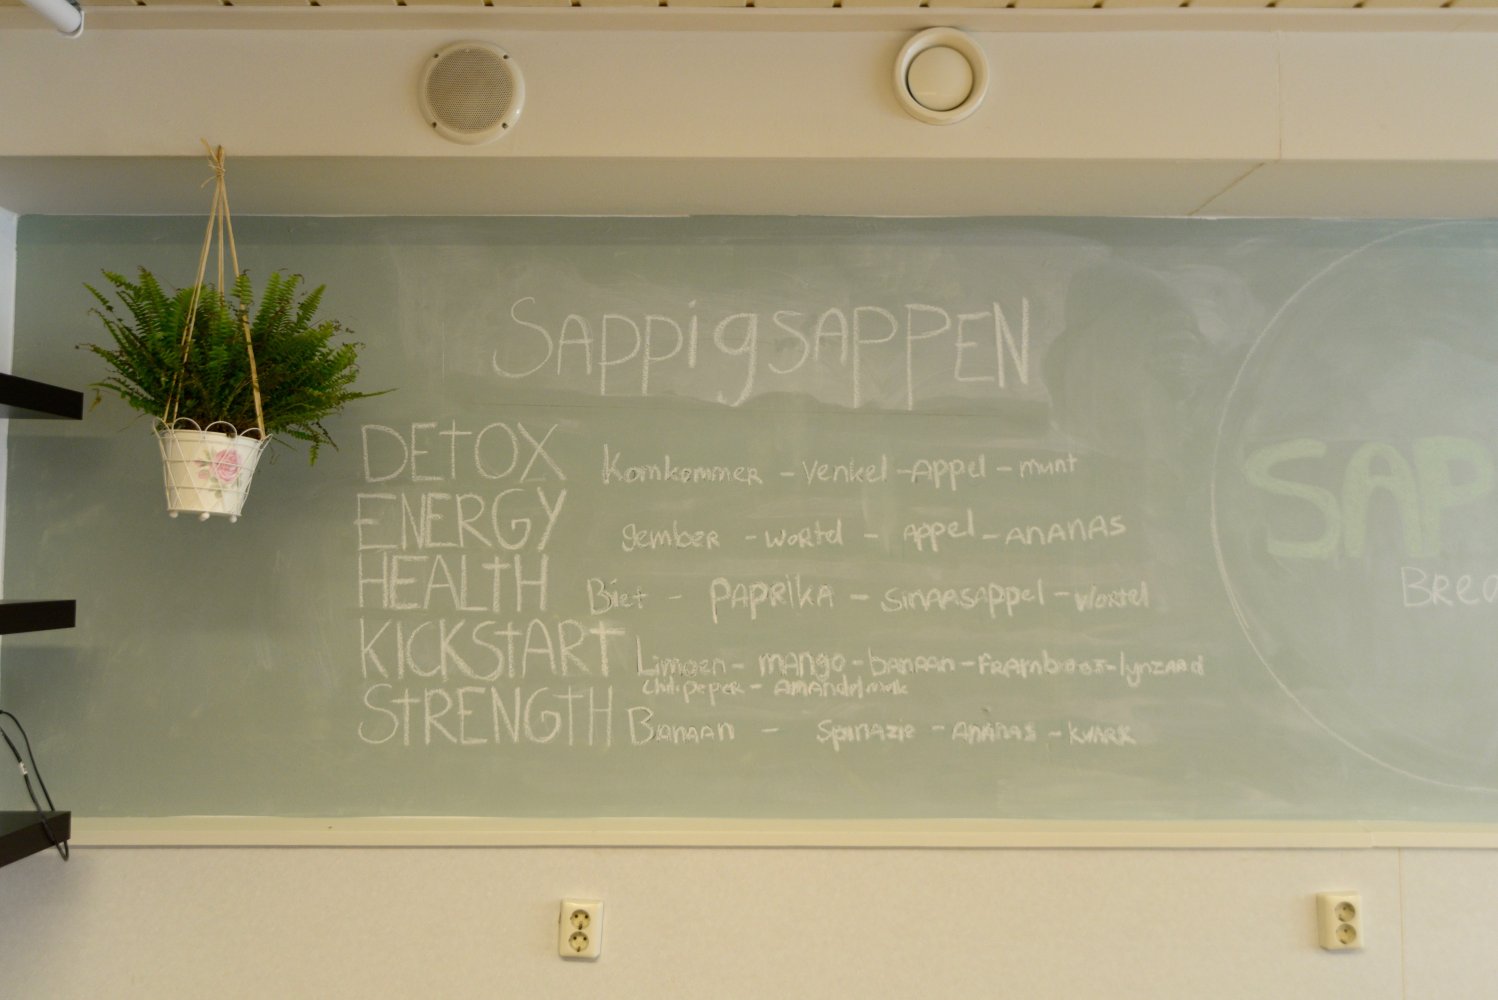 SAPPigSAPPEN
DETOX Komkommer - Venkel - Appel - munt
ENERGY gember - wortel - appel - ANANAS
HEALTH Biet - PAPRIKA - SINAASAPPEL - wortel
KICKSTART Limoen - mango - banaan - FRAMboos - lynzaad
Chilipeper - AMANdelmelk
STRENGTH BANAAN - SPINAZIE - ANANAS - KWARK
SAP
BREA